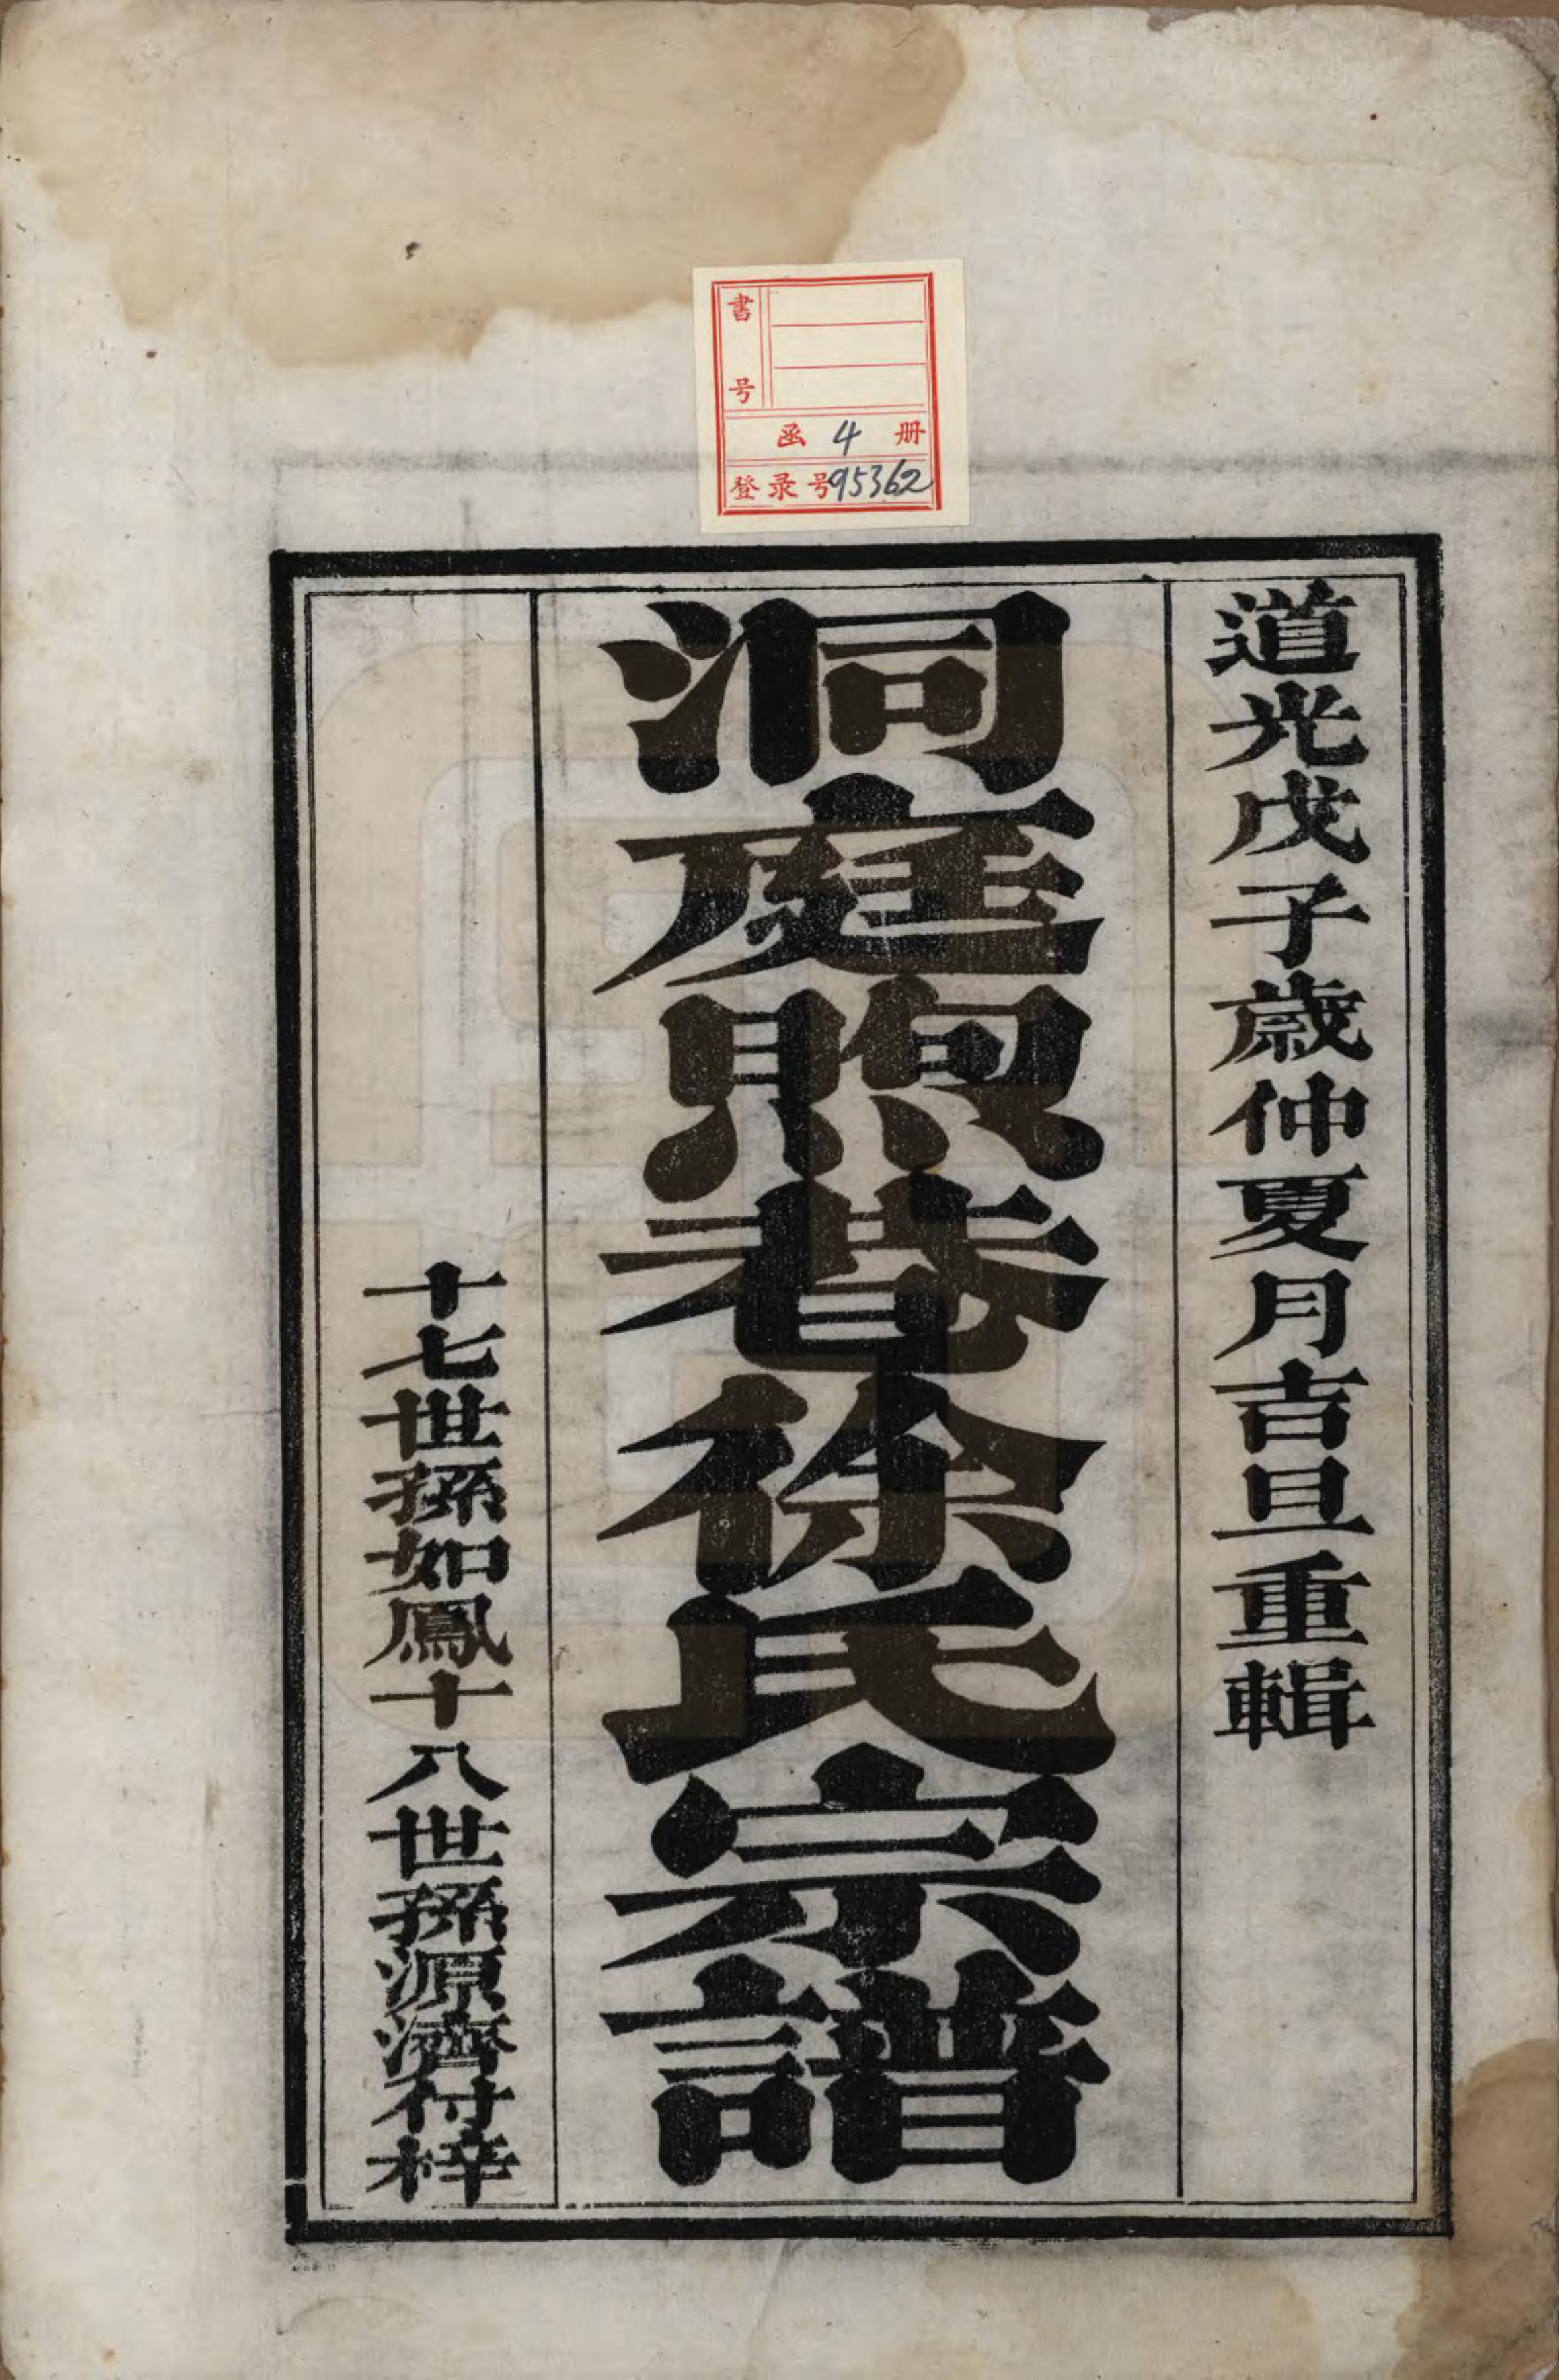 書号
函 4 册
登录号95362
道光戊子歲仲夏月吉旦重輯
洞庭煦巷徐氏宗譜
十七世孫如鳳十八世孫源濟付梓